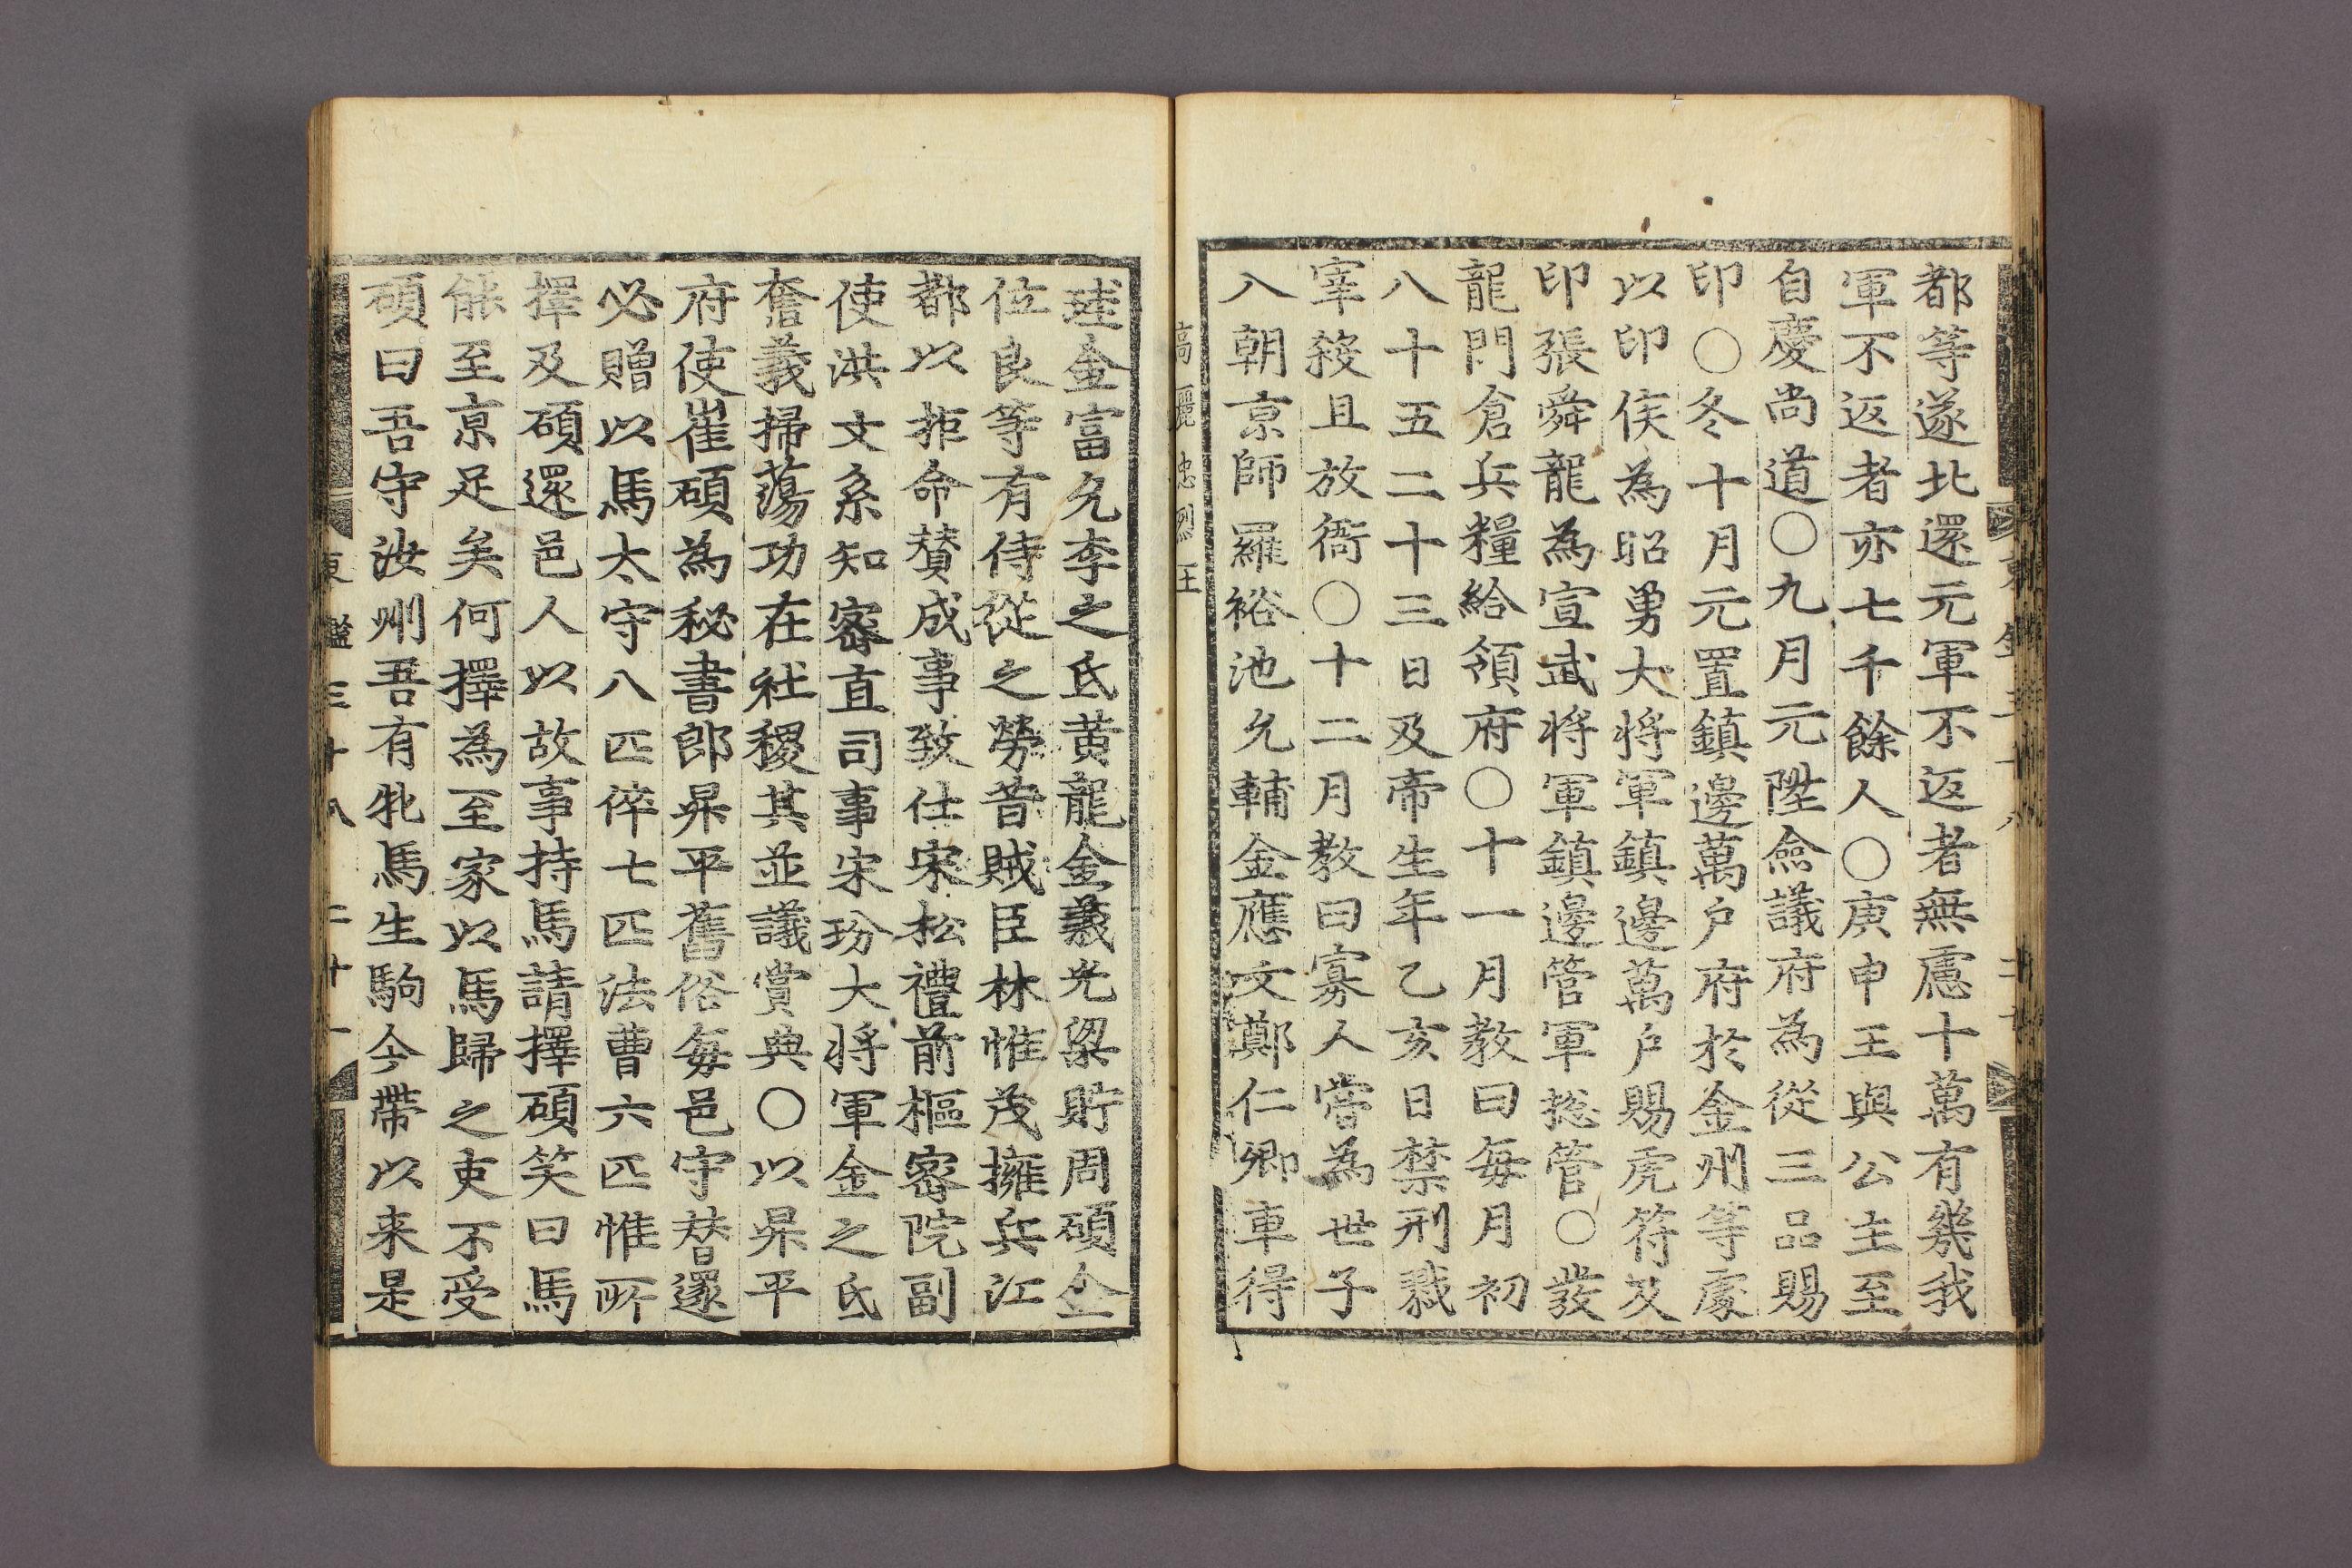 都等遂北還元軍不返者無慮十萬有幾我
軍不返者亦七千餘人○庚申王與公主至
自慶尚道○九月元陞僉議府為從三品賜
印○冬十月元置鎮邊萬戶府於金州等處
以印侯為昭勇大將軍鎮邊萬戶賜虎符及
印張舜龍為宣武將軍鎮邊管軍摠管○發
龍門倉兵糧給領府○十一月教曰每月初
八十五二十三日及帝生年乙亥日禁刑戮
宰殺且放衙○十二月教曰寡人嘗為世子
八朝京師羅裕池允輔金應文鄭仁卿車得
高麗忠烈王
珪金富允李之氐黃龍金義光梁貯周碩全
位良等有侍從之勞昔賊臣林惟茂擁兵江
都以拒命賛成事致仕宋松禮前樞密院副
使洪文系知密直司事宋玢大將軍金之氐
奮義掃蕩功在社稷其並議賞典○以昇平
府使崔碩為秘書郎昇平舊俗每邑守替還
必贈以馬太守八匹倅七匹法曹六匹惟所
擇及碩還邑人以故事持馬請擇碩笑曰馬
能至京足矣何擇為至家以馬歸之吏不受
碩曰吾守汝州吾有牝馬生駒今帶以来是
東鑑三十八 二十一